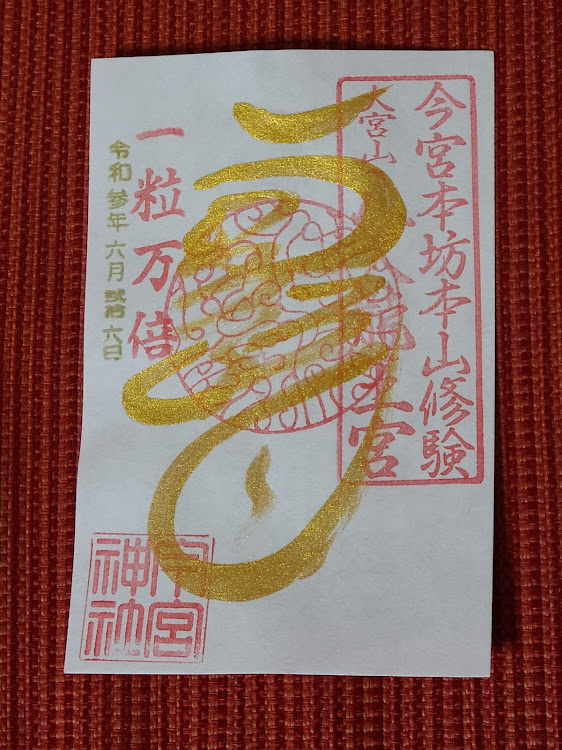 今宮本坊本山修験
大宮山
宮
一粒万倍
令和参年六月弐拾六日
今宮
神社